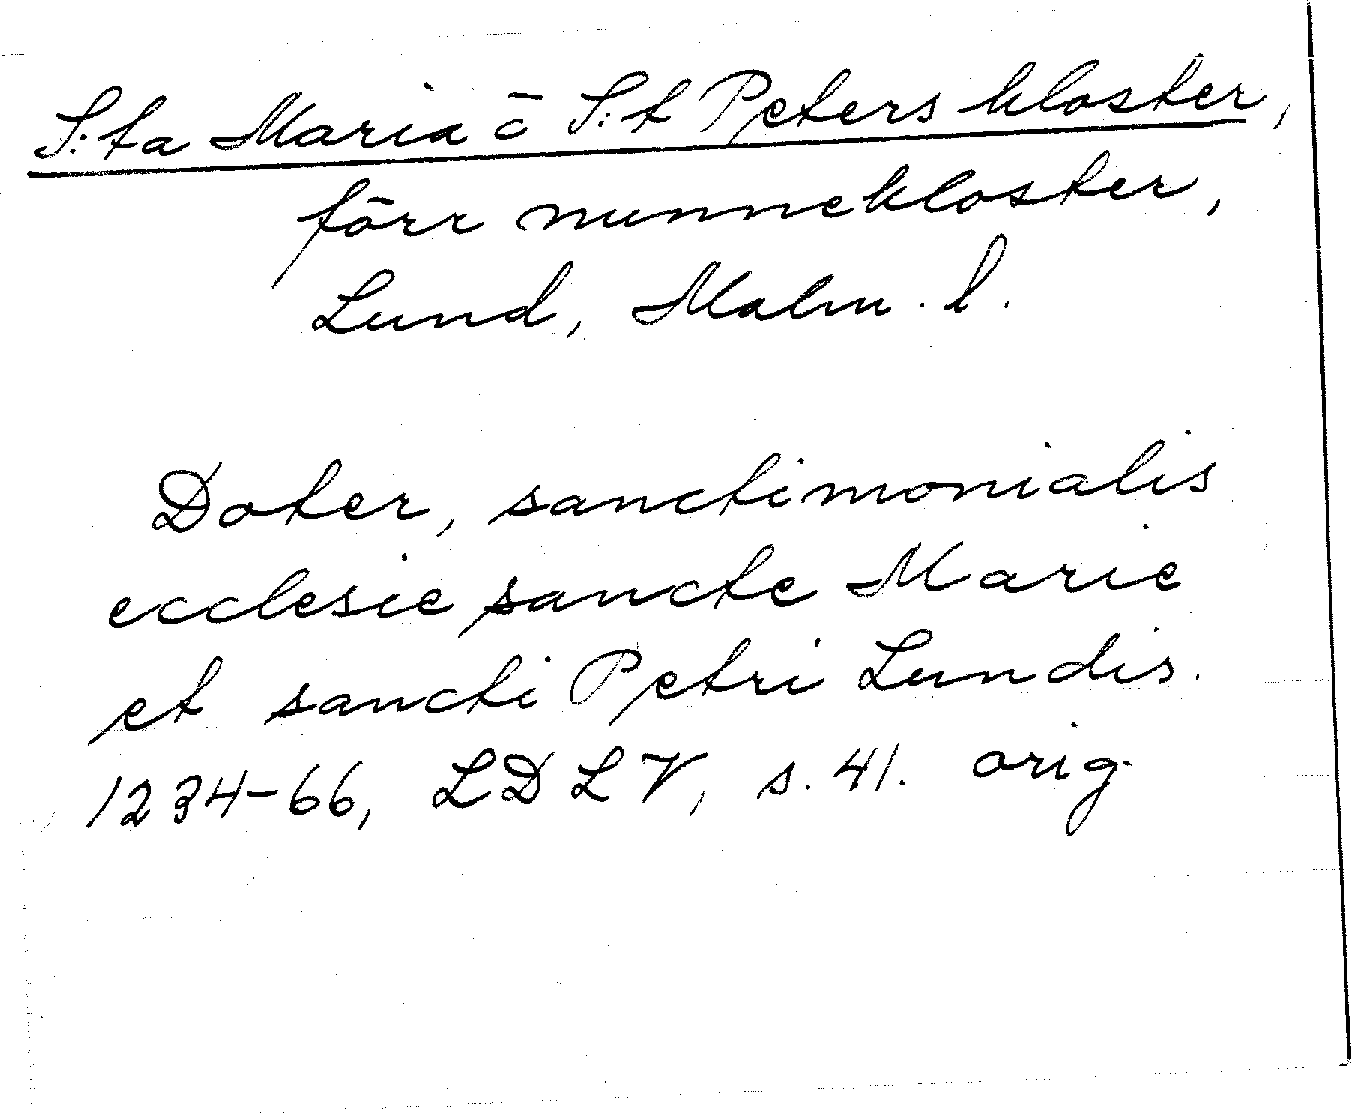 S:ta Maria o S:t Peters kloster,
förr nunnekloster,
Lund, Malm. l.
Doter, sanctimonialis
ecclesie sancte Marie
et sancti Petri Lundis.
1234-66, LDLV, s. 41. orig.